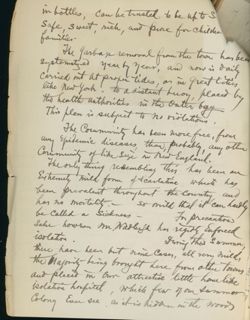 in bottles, can be trusted to be up to S
Safe, sweet, rich, and pure for Children
families.
The Garbage removal from the town has been
systematized year by year, and now is daily
carried out at proper tides, or in great cities,
like New York. to a distant buoy, placed by
the health authorities in the Outer bay
This plan is subject to no violations.
The Community has been more free, from
any Epidemic diseases than, probably, any other
Community of like size in New England.
The only thing resembling this has been an
Extremely mild form of which has
been prevalent throughout the County and
has no mortality - so mild that it can hardly
be called a sickness - For precautions
sake however Mr has rigidly enforced
isolation. During this Summer
there have been but nine cases, all very mild,
the majority being brought here from other towns
and placed in our attractive little home like
isolation hospital, which few of our Summer
Colony Ever see as it is hidden in the woods